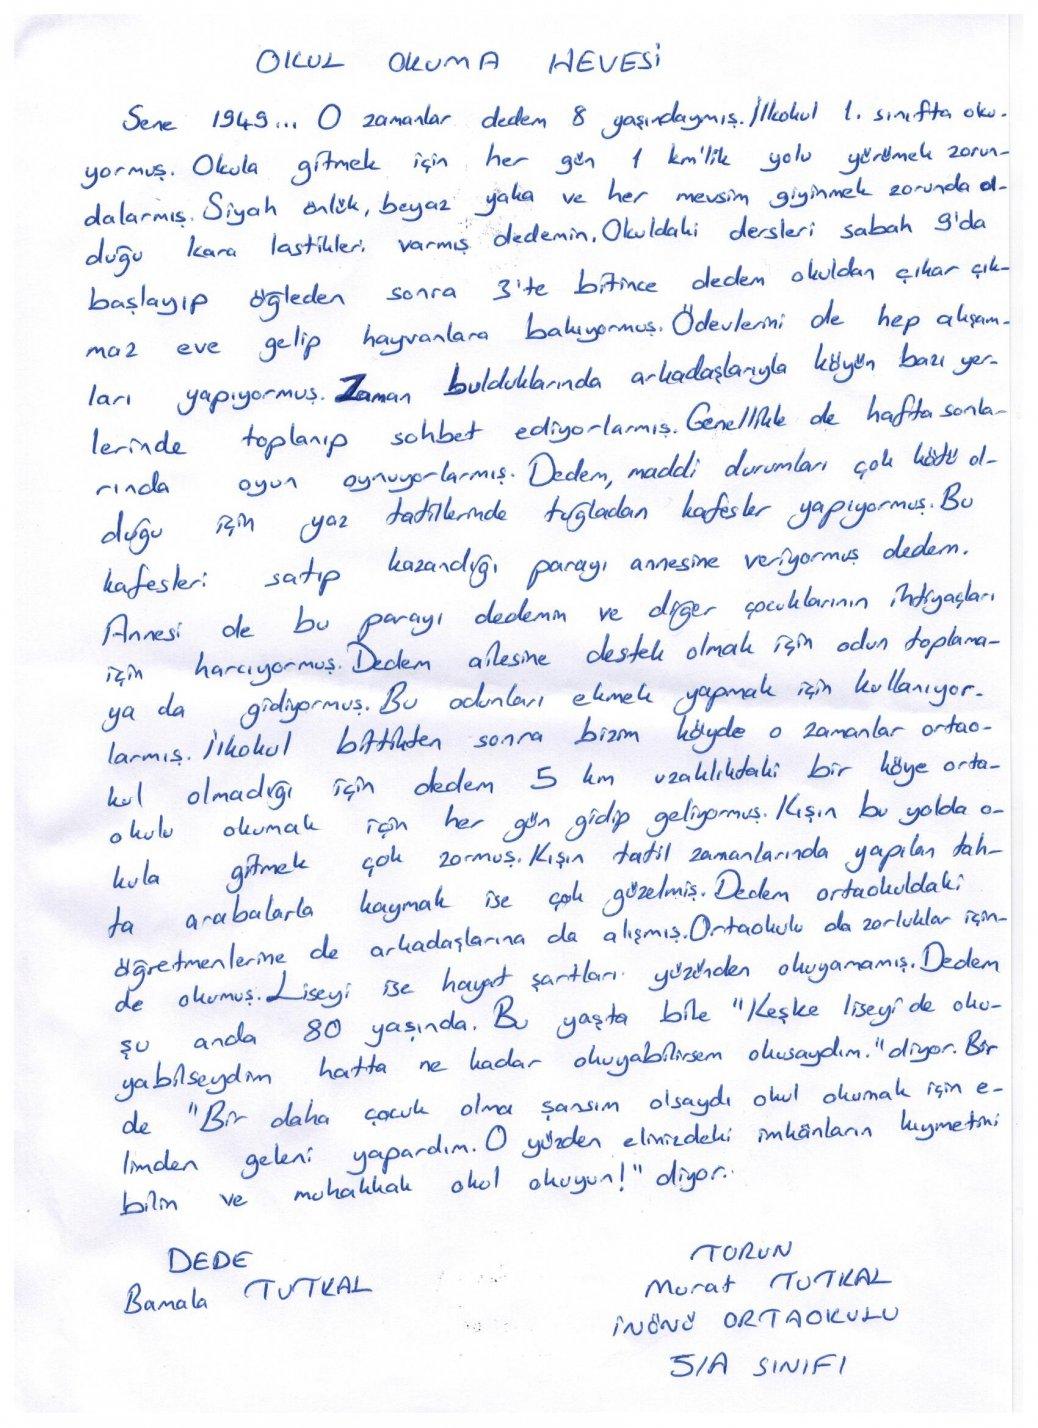 OKUL OKUMA HEVESİ
Sene 1949... O zamanlar dedem 8 yaşındaymış. İlkokul 1. sınıfta oku-
yormuş. Okula gitmek için her gün 1 km'lik yolu yürümek zorun-
dalarmış. Siyah önlük, beyaz yaka ve her mevsim giyinmek zorunda ol-
duğu kara lastikleri varmış dedemin. Okuldaki dersleri sabah 9'da
başlayıp öğleden sonra 3'te bitince dedem okuldan çıkar çık-
maz eve gelip hayvanlara bakıyormuş. Ödevlerini de hep akşam-
ları yapıyormuş. Zaman bulduklarında arkadaşlarıyla köyün bazı yer-
lerinde toplanıp sohbet ediyorlarmış. Genellikle de hafta sonla-
rında oyun oynuyorlarmış. Dedem, maddi durumları çok kötü ol-
duğu için yaz tatillerinde tuğladan kafesler yapıyormuş. Bu
kafesleri satıp kazandığı parayı annesine veriyormuş dedem.
Annesi de bu parayı dedemin ve diğer çocuklarının ihtiyaçları
için harcıyormuş. Dedem ailesine destek olmak için odun toplama-
ya da gidiyormuş. Bu odunları ekmek yapmak için kullanıyor-
larmış. İlkokul bittikten sonra bizim köyde o zamanlar ortao-
kul olmadığı için dedem 5 km uzaklıktaki bir köye orta-
okulu okumak için her gün gidip geliyormuş. Kışın bu yolda o-
kula gitmek çok zormuş. Kışın tatil zamanlarında yapılan tah-
ta arabalarla kaymak ise çok güzelmiş. Dedem ortaokuldaki
öğretmenlerine de arkadaşlarına da alışmış. Ortaokulu da zorluklar için-
de okumuş. Liseyi ise hayat şartları yüzünden okuyamamış. Dedem
şu anda 80 yaşında. Bu yaşta bile "Keşke liseyi de oku-
yabilseydim hatta ne kadar okuyabilirsem okusaydım." diyor. Bir
de "Bir daha çocuk olma şansım olsaydı okul okumak için e-
limden geleni yapardım. O yüzden elinizdeki imkânların kıymetini
bilin ve muhakkak okul okuyun!" diyor.
DEDE
Bamala TUTKAL
TORUN
Murat TUTKAL
İNÖNÜ ORTAOKULU
5/A SINIFI